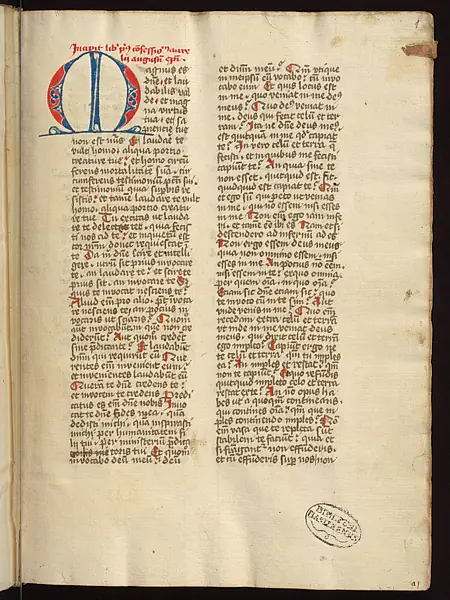 Incipit lib(er) p(rimus) co(n)fessio(num) aure
lii augusti(ni) ep(iscop)i
Magnus es
d(omi)ne et lau
dabilis val
de et mag
na virtus
tua et sa
pientie tue
non est nu(merus) Et laudare te
vult homo aliqua portio
creature tue Et homo circu(m)
ferens mortalitate(m) sua(m) cir
cumferens testimoniu(m) p(e)c(ca)ti sui
et testimoniu(m) quia superbis re
sistis Et tamen laudare te vult
homo aliqua portio creatu
re tue Tu excitas ut lauda
re te delectet quia fecis
ti nos ad te Et inquietu(m) est
cor n(ost)r(u)m donec requiescat i(n)
te Da m(ihi) d(omi)ne scire et intelli
gere utru(m) sit prius invocare
te an laudare te Et scire te
prius sit an invocare te S(ed)
quis te invocat nesciens te
Aliud eni(m) pro alio p(otes)t invoca
re nesciens te an pocius in
vocaris ut sciaris Quom(odo)
aut(em) invocabu(n)t in que(m) non cre
diderunt Aut quom(odo) credent
sine p(re)dicante Et laudabu(n)t
d(omi)n(u)m qui requirunt eu(m) Que
rentes eni(m) invenient eum
et invenientes laudabunt eu(m)
Quera(m) te d(omi)ne credens te
et invocem te credens Predi
catus es eni(m) d(omi)ne nobis Invo
cat te d(omi)ne fides mea qua(m)
dedisti michi qua(m) inspirasti
michi per humanitatem fi
lii tui per ministeriu(m) p(re)dica
toris tui Et quom(odo)
invocabo deu(m) meu(m) deu(m)
et d(omi)n(u)m meu(m) Q(uonia)m utique
in meipsu(m) eu(m) vocabo cu(m) invo
cabo eum Et quis locus est
in me quo veniat in me de(us)
meus Quo de(us) veniat in
me deus qui fecit celu(m) et ter
ram Ita ne d(omi)ne deus me(us)
est quitqua(m) in me q(uo)d capiat
te An vero celu(m) et terra q(ue)
fecisti et in quibus me fecisti
capiunt te An quia sine te
non esset quitquid est fit
quidquid est capiat te Q(uonia)m
et ego su(m) quid peto ut venias
in me qui no(n) essem nisi esses
in me Non eni(m) ego iam infe
ri et tame(n) et(iam) ibi es Nam et si
descendero ad infernu(m) ad es
Non ergo essem deus meus
qua(m) non omnino essem nisi
esses in me An potius no(n) e(ss)em
nisi essem in te ex quo omnia
per quem o(mn)ia in quo o(mn)ia
Etiam sic d(omi)ne etiam sic quo
te invoco cu(m) in te sim Aut
unde venis in me Quo eni(m)
recedam extra celu(m) et terra(m)
ut inde in me veniat deus
meus qui dixit celu(m) et terra(m)
ego impleo Capiunt ergo te
te celu(m) et terra q(uonia)m tu imples
ea An imples et restat q(uonia)m
non te capiunt Et quo refundis
quitquid impleto celo et terra
restat ex te An no(n) opus ha
bes ut a quoqua(m) contineris
qui contines o(mn)ia q(uonia)m que im
ples continendo imples No(n)
eni(m) vasa que te plena su(n)t
stabilem te faciu(n)t quia et
si frangant(ur) non effunderis
et cu(m) effunderis sup(er) nos non